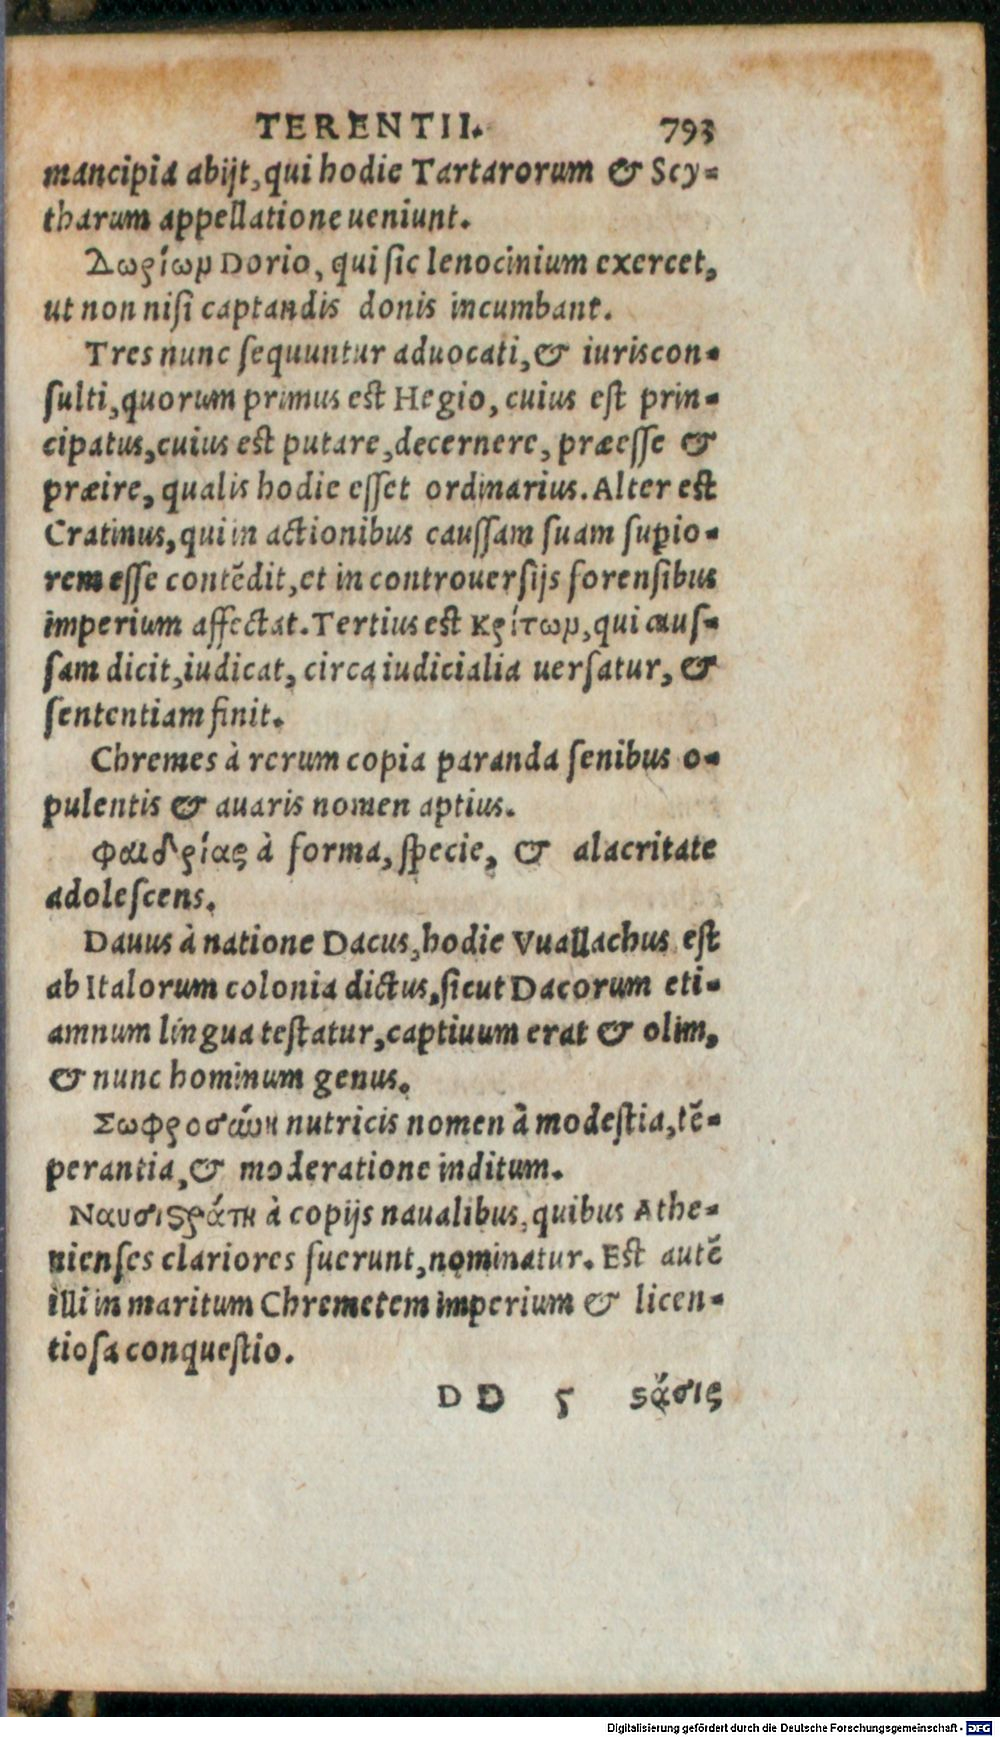 TERENTII. 793
mancipia abijt, qui hodie Tartarorum & Scy-
tharum appellatione ueniunt.
Δωρίων Dorio, qui sic lenocinium exercet,
ut non nisi captandis donis incumbant.
Tres nunc sequuntur aduocati, & iuriscon-
sulti, quorum primus est Hegio, cuius est prin-
cipatus, cuius est putare, decernere, præesse &
præire, qualis hodie esset ordinarius. Alter est
Cratinus, qui in actionibus caussam suam supio-
rem esse contẽdit, et in controuersijs forensibus
imperium affectat. Tertius est Κρίτων, qui caus-
sam dicit, iudicat, circa iudicialia uersatur, &
sententiam finit.
Chremes à rerum copia paranda senibus o-
pulentis & auaris nomen aptius.
Φαιδρίας à forma, specie, & alacritate
adolescens.
Dauus à natione Dacus, hodie Vuallachus est
ab Italorum colonia dictus, sicut Dacorum eti-
amnum lingua testatur, captiuum erat & olim,
& nunc hominum genus.
Σωφροσύνη nutricis nomen à modestia, tẽ-
perantia, & moderatione inditum.
Ναυσιϛράτη à copijs naualibus, quibus Athe-
nienses clariores fuerunt, nominatur. Est autẽ
illi in maritum Chremetem imperium & licen-
tiosa conquestio.
DD 5 ϛάσις
Digitalisierung gefördert durch die Deutsche Forschungsgemeinschaft - DFG